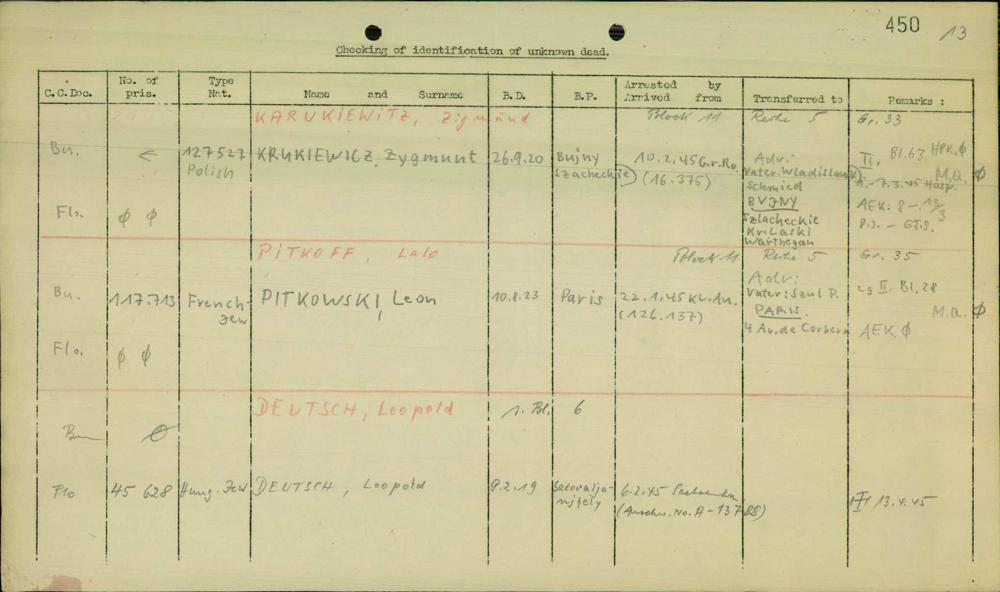 450 /13
Checking of identification of unknown dead.
C.C.Doc. No. of pris. Type Nat. Name and Surname B.D. B.P. Arrested by Arrived from Transferred to Remarks :
KARUKIEWITZ, Zigmund Block 11 Reihe 5 Gr. 33
Bu. 127527 KRUKIEWICZ, Zygmunt 26.9.20 Bujny 10.2.45 Gr.Ro. Adr: II, Bl.63. HPK.ϕ
Polish Szacheckie (16.375) Vater: Wladislaw M.Q. ϕ
Schmied 1.-7.3.45 Hosp.
Flo. ϕ ϕ BUJNY AEK: 8-13/3
Szlacheckie P.S. - GT.S.
Kr. Laski
Warthegau
PITKOFF, Lalo Block 11 Reihe 5 Gr. 35
Bu. 117.713 French- PITKOWSKI, Leon 10.8.23 Paris 22.1.45 KL.Au. Adr: II. Bl.28
Jew (126.137) Vater: Szul P. M.Q. ϕ
PARIS.
4 Av. de Corbera AEK. ϕ
Flo. ϕ ϕ
DEUTSCH, Loopold 1. Bl. 6
Bu ϕ
Flo 45 628 Hung. Jew DEUTSCH, Loopold 9.2.19 6.2.45 13.4.45
(Auschw. No. A-13788)